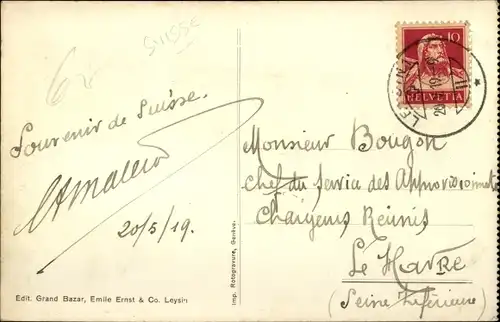 SUISSE
10
HELVETIA
LEYSIN
Souvenir de Suisse.
20/5/19.
Monsieur Bougon
Chef du Service des Approvisionnements
Chargeurs Réunis
Le Havre
(Seine Inférieure)
Imp. Rotogravure, Genève.
Edit. Grand Bazar, Emile Ernst & Co. Leysin